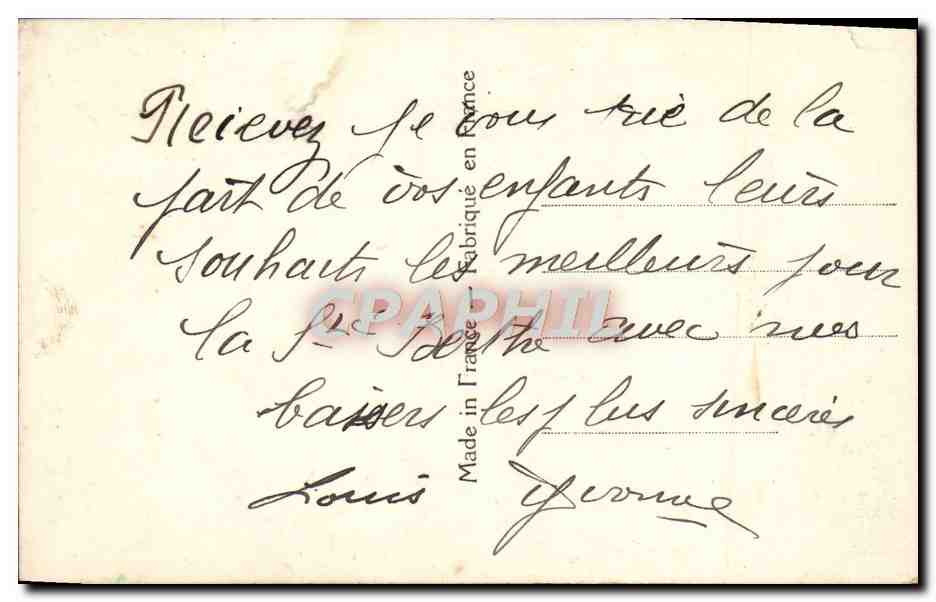 Recievez je vous prie de la
part de vos enfants leurs
souhaits les meilleurs pour
la Ste Berthe avec nos
baisers les plus sincères
Louis Yvonne
Made in France - Fabriqué en France
CPAPHIL